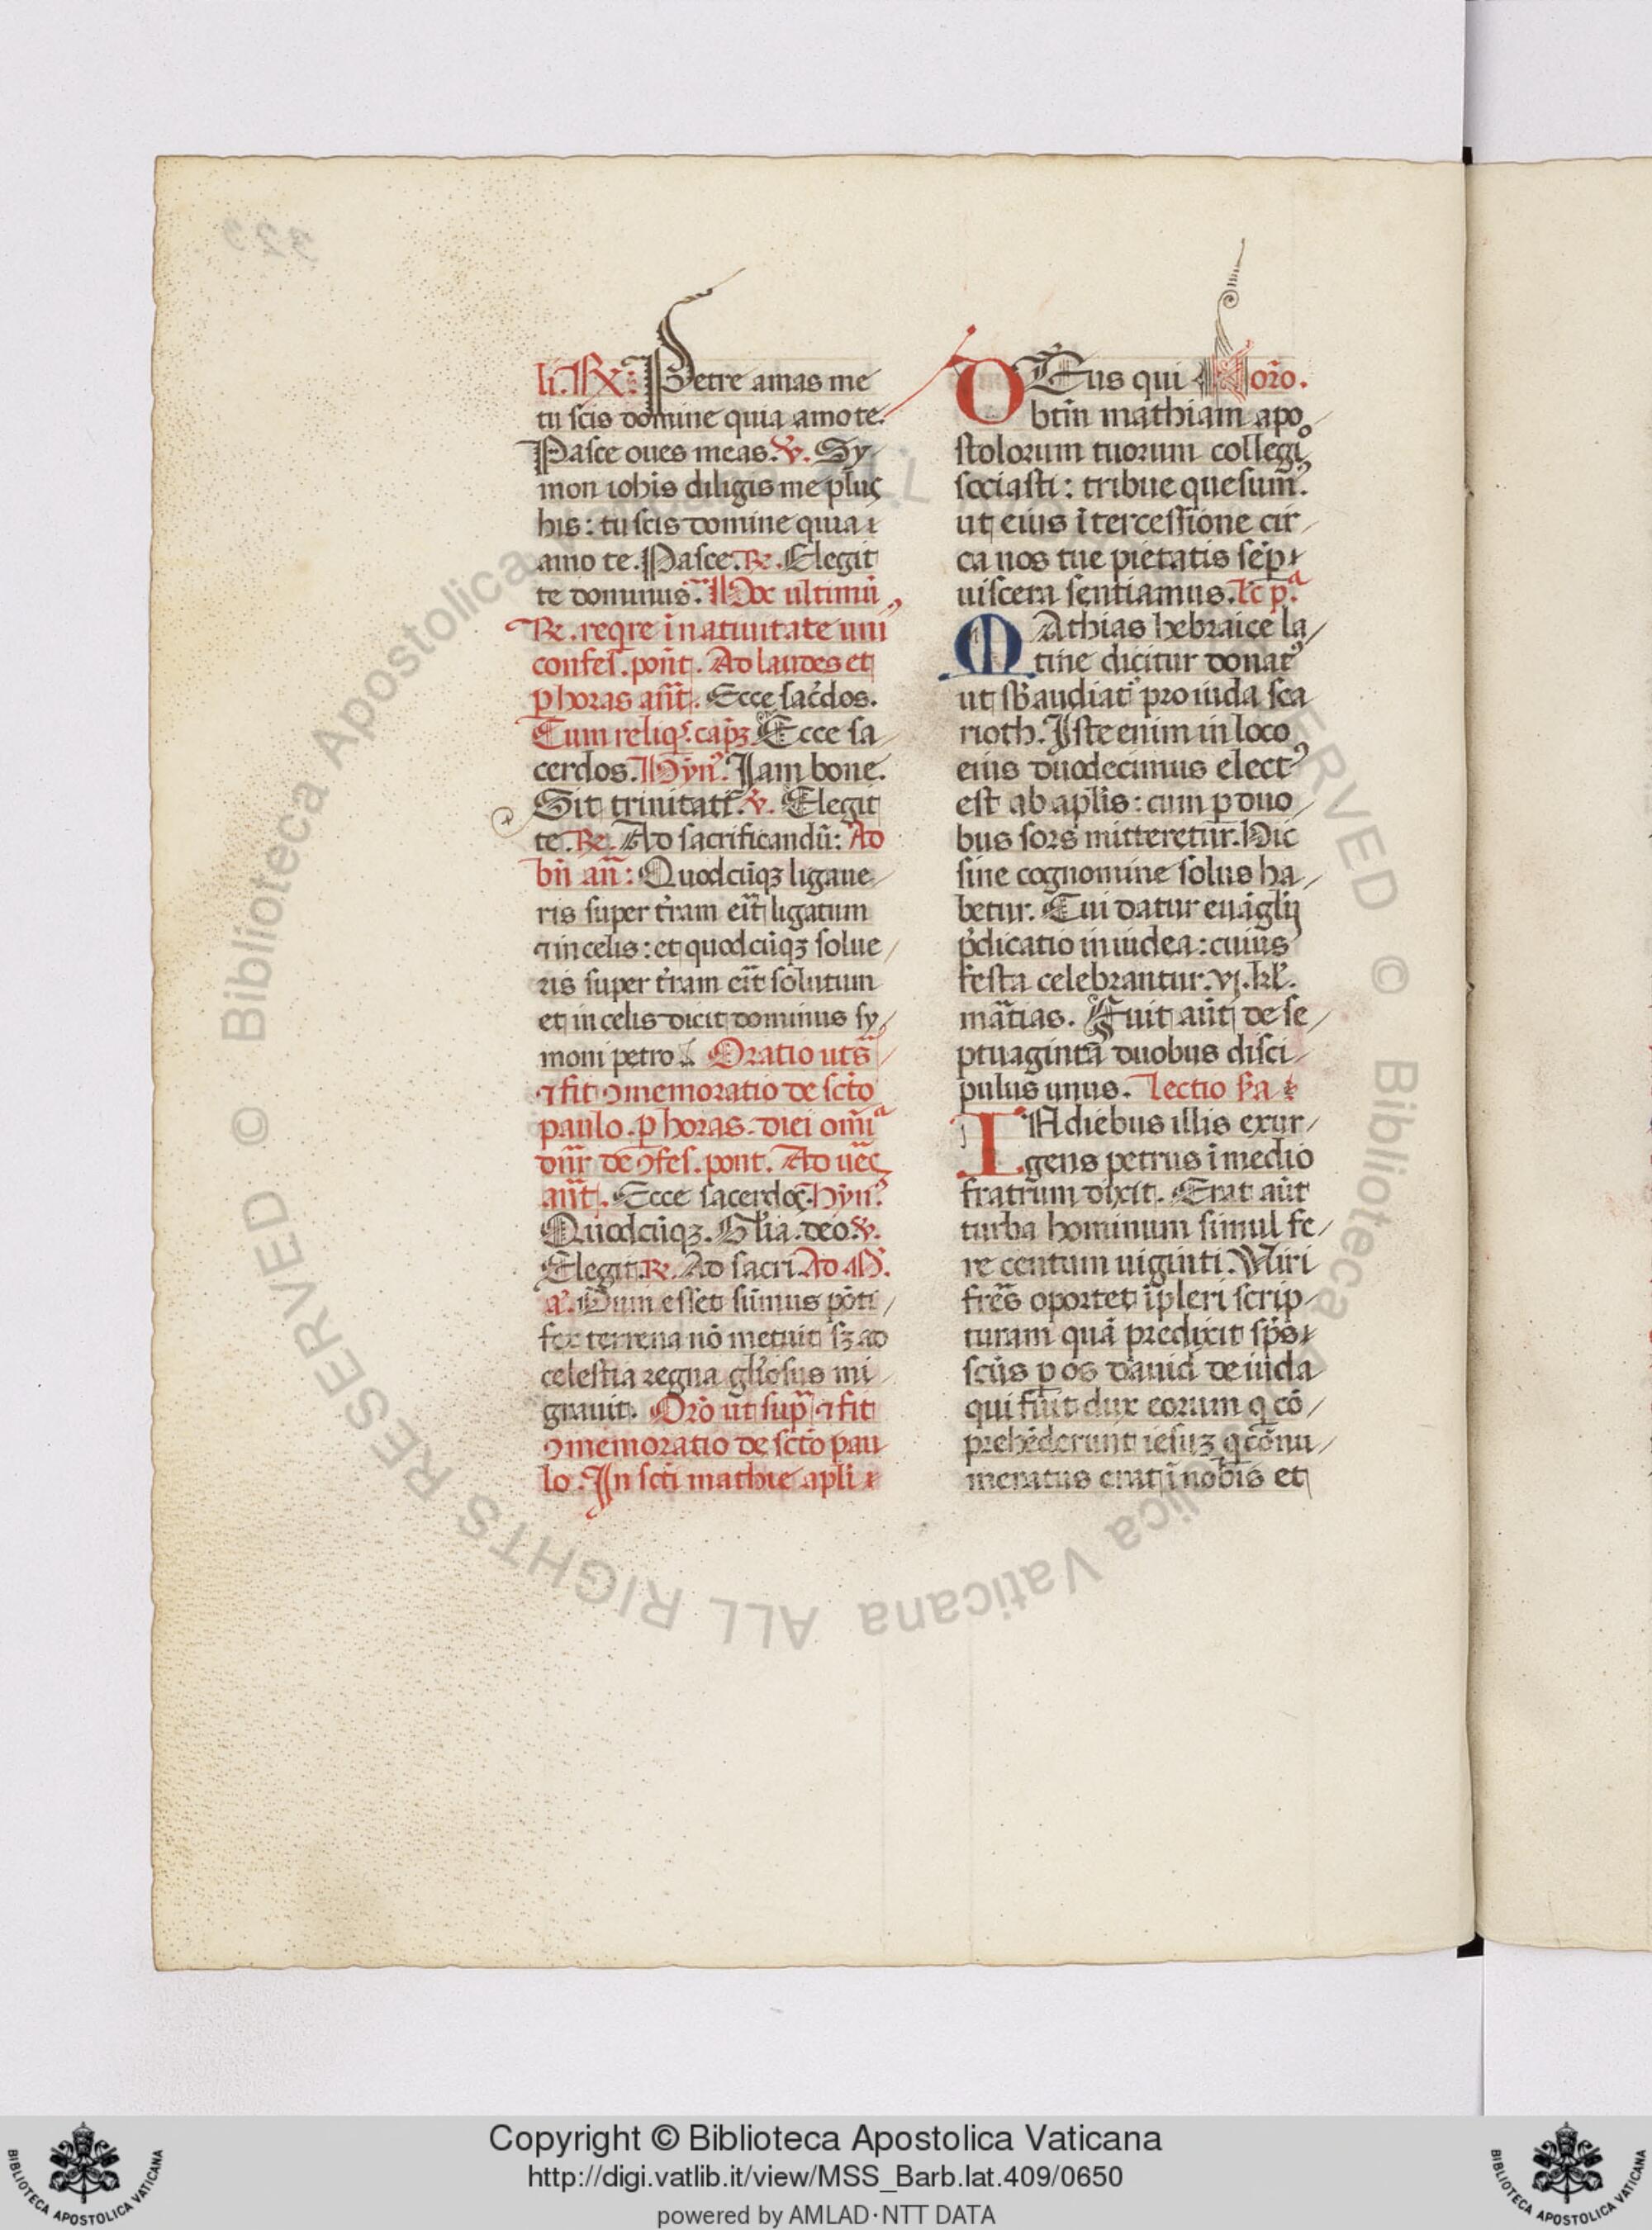 li. ℟: Petre amas me
tu scis domine quia amo te.
Pasce oues meas. ℣. Sy
mon iohis diligis me plus
his: tu scis domine quia
amo te. Pasce. ℟. Elegit
te dominus. Hoc ultimũ
℟. reqre ĩ natiuitate uni
confes. pont̃. Ad laudes et
ꝑ horas añt. Ecce sac̃dos.
Cum reliq̃s. Ecce sa
cerdos. Hỹn. Iam bone.
Sit trinitati. ℣. Elegit
te. ℟. Ad sacrificandũ: Ad
bñ añ: Quodcũqꝫ ligaue
ris super t̃ram erit ligatum
⁊ in celis: et quodcũqꝫ solue
ris super t̃ram erit solutum
et in celis dicit dominus sy
moni petro. Oratio ut s̃
⁊ fit ꝯmemoratio de scto
paulo. ꝑ horas. diei om̃ia
dñr de ꝯfes. pont. Ad ues
añt. Ecce sacerdos. hyñ.
Quodcũqꝫ. Glia. deo. ℣.
Elegit. ℟. Ad sacri. Ad M.
a. Dum esset sũmus põti
fex terrena nõ metuit sꝫ ad
celestia regna gliosus mi
grauit. Orõ ut sup̃ ⁊ fit
ꝯmemoratio de scto pau
lo. In scti mathie apli
DEus qui orõ.
btm̃ mathiam apo
stolorum tuorum collegio
sociasti: tribue quesumꝰ.
ut eius ĩtercessione cir
ca nos tue pietatis sẽp
uiscera sentiamus. Lc p.ª
MAthias hebraice la
tine dicitur donatꝰ
ut sb̃audiat᷑ pro iuda sca
rioth. Iste enim in loco
eius duodecimus electꝰ
est ab aplis: cum ꝑ duo
bus sors mitteretur. Hic
sine cognomine solus ha
betur. Cui datur euãglij
p̃dicatio in iudea: cuius
festa celebrantur. vj. kl̃.
martias. Fuit aũt de se
ptuaginta duobus disci
pulus unus. Lectio ẜa
IN diebus illis exur
gens petrus ĩ medio
fratrum dixit. Erat aũt
turba hominum simul fe
re centum uiginti. Viri
fres̃ oportet ĩpleri scrip
turam quã predixit sp̃s
scũs ꝑ os dauid de iuda
qui fuit dux eorum q̃ cõ
prehẽderunt iesuꝫ q̃ cõnu
meratus erat ĩ nobis et
Copyright © Biblioteca Apostolica Vaticana
http://digi.vatlib.it/view/MSS_Barb.lat.409/0650
powered by AMLAD·NTT DATA
BIBLIOTECA APOSTOLICA VATICANA
BIBLIOTECA APOSTOLICA VATICANA
© Biblioteca Apostolica Vaticana ALL RIGHTS RESERVED